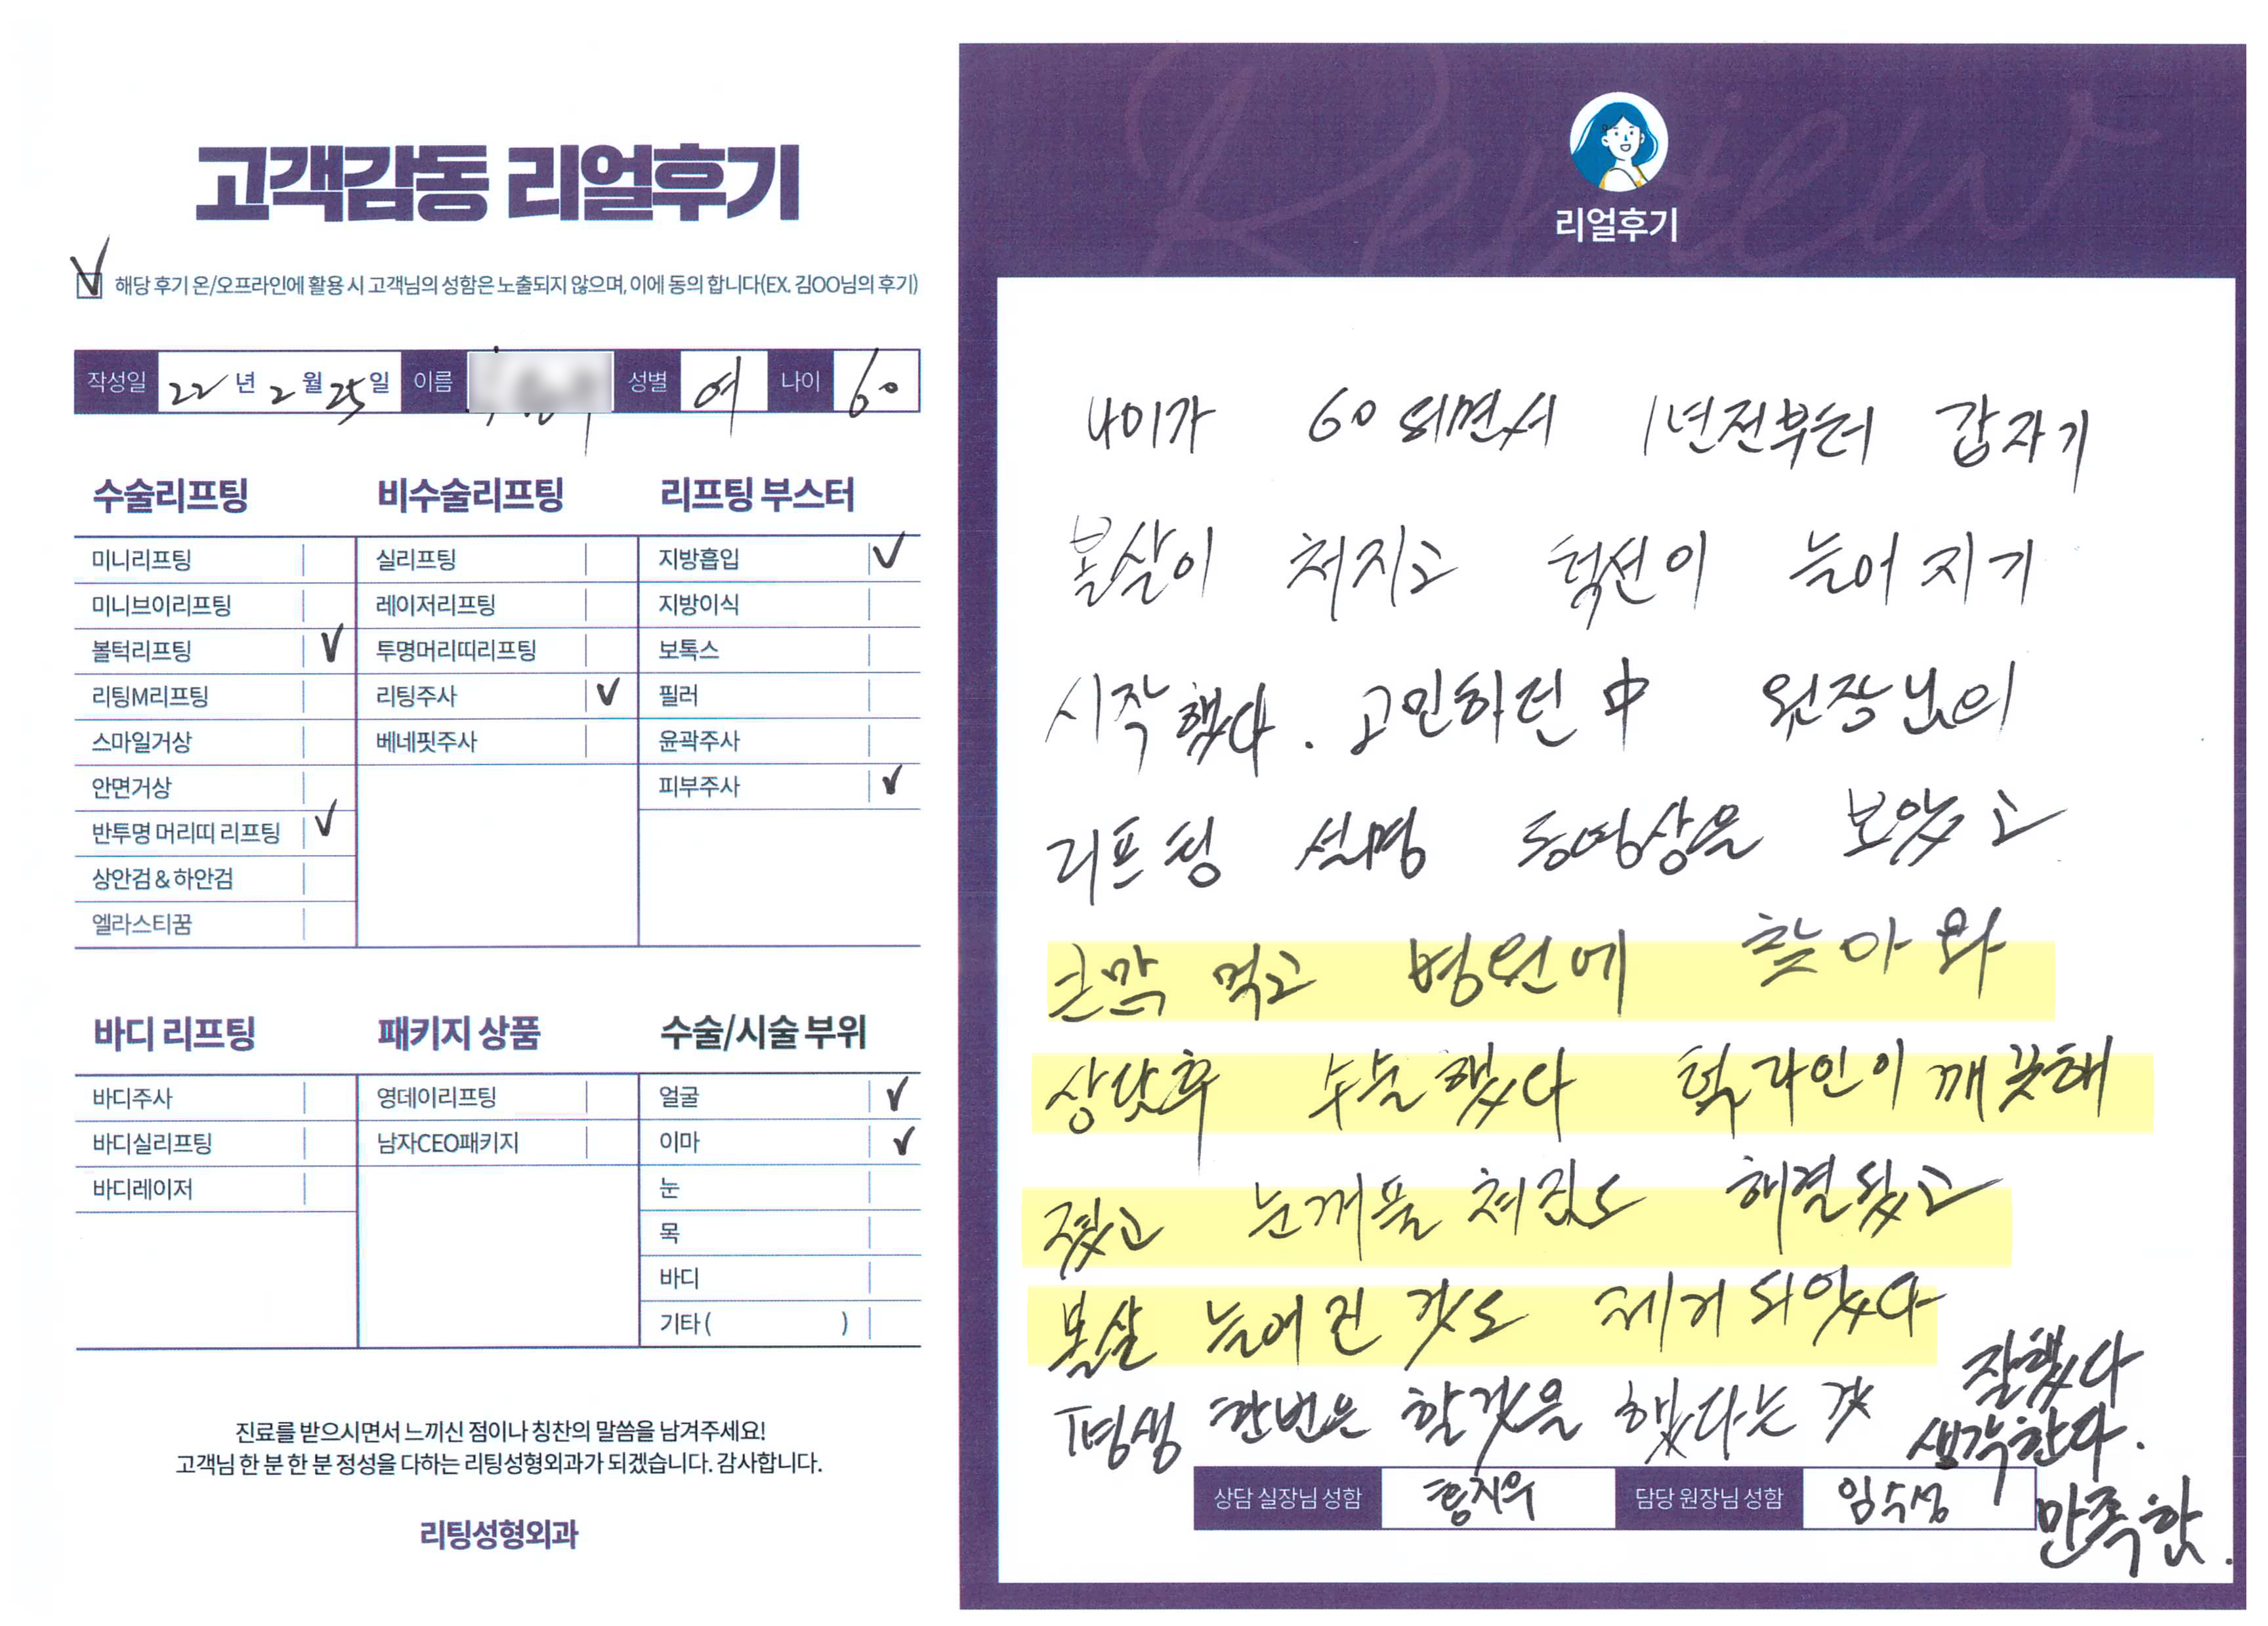 고객감동 리얼후기
해당 후기 온/오프라인에 활용 시 고객님의 성함은 노출되지 않으며, 이에 동의 합니다(EX. 김OO님의 후기)
작성일 22년 2월 25일 이름 성별 여 나이 60
수술리프팅
미니리프팅
미니브이리프팅
볼턱리프팅 ✓
리팅M리프팅
스마일거상
안면거상
반투명 머리띠 리프팅 ✓
상안검 & 하안검
엘라스티꿈
비수술리프팅
실리프팅
레이저리프팅
투명머리띠리프팅
리팅주사 ✓
베네핏주사
리프팅 부스터
지방흡입 ✓
지방이식
보톡스
필러
윤곽주사
피부주사 ✓
바디 리프팅
바디주사
바디실리프팅
바디레이저
패키지 상품
영데이리프팅
남자CEO패키지
수술/시술 부위
얼굴 ✓
이마 ✓
눈
목
바디
기타 ( )
진료를 받으시면서 느끼신 점이나 칭찬의 말씀을 남겨주세요!
고객님 한 분 한 분 정성을 다하는 리팅성형외과가 되겠습니다. 감사합니다.
리팅성형외과
Review
리얼후기
나이가 60 되면서 1년전부터 갑자기
볼살이 쳐지고 턱선이 늘어지기
시작했다. 고민하던 中 원장님의
리프팅 설명 동영상을 보았고
큰맘 먹고 병원에 찾아와
상담후 수술했다 턱라인이 깨끗해
졌고 눈꺼풀 쳐짐도 해결됐고
볼살 늘어진 것도 제거 되었다
평생 한번은 할것을 했다는 것 잘했다
생각한다.
만족함.
상담 실장님 성함 담당 원장님 성함 임수성